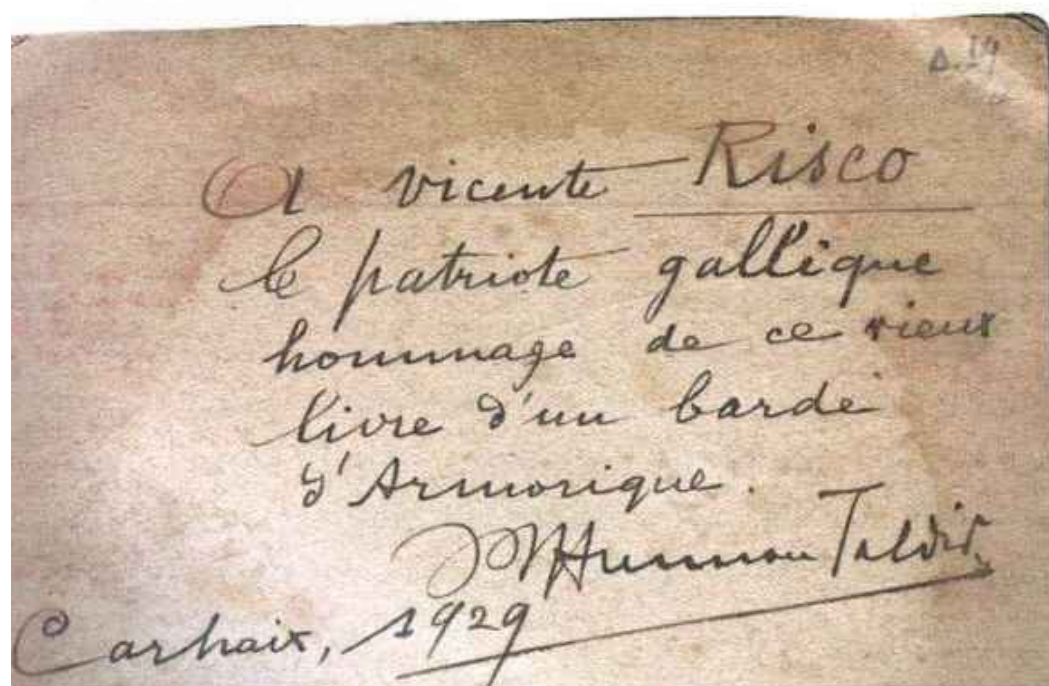 Δ.19
A vicente Risco
le patriote gallique
hommage de ce vieux
livre d'un barde
d'Armorique.
Taldir
Carhaix, 1929